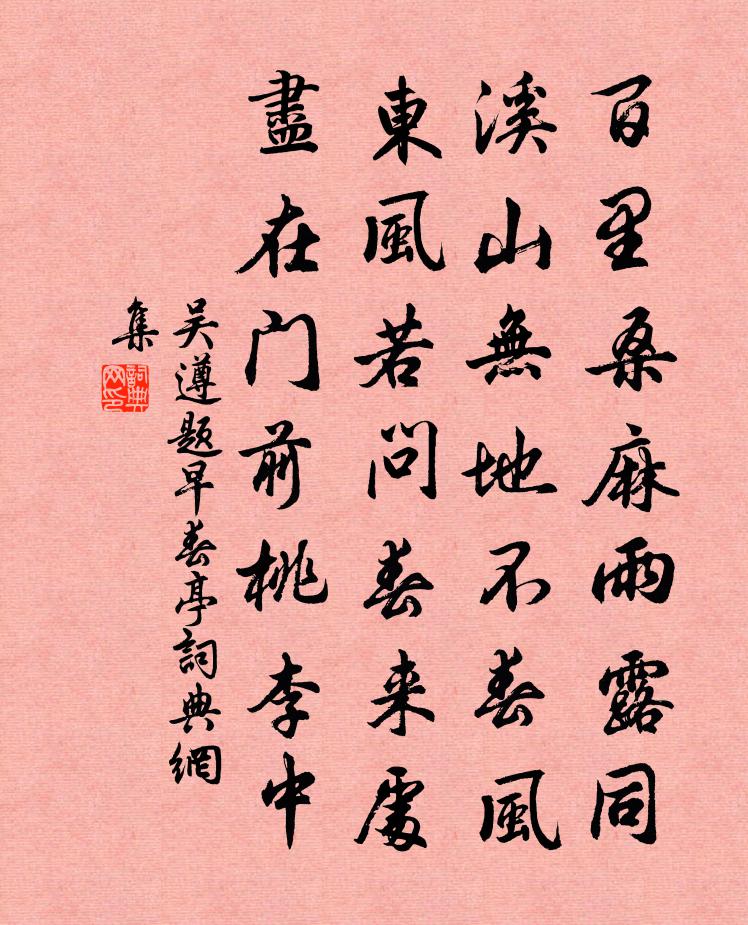 百里桑麻雨露同
溪山無地不春風
東風若問春来處
盡在门前桃李中
吴遵题早春亭詞典網
集
詞典
网印